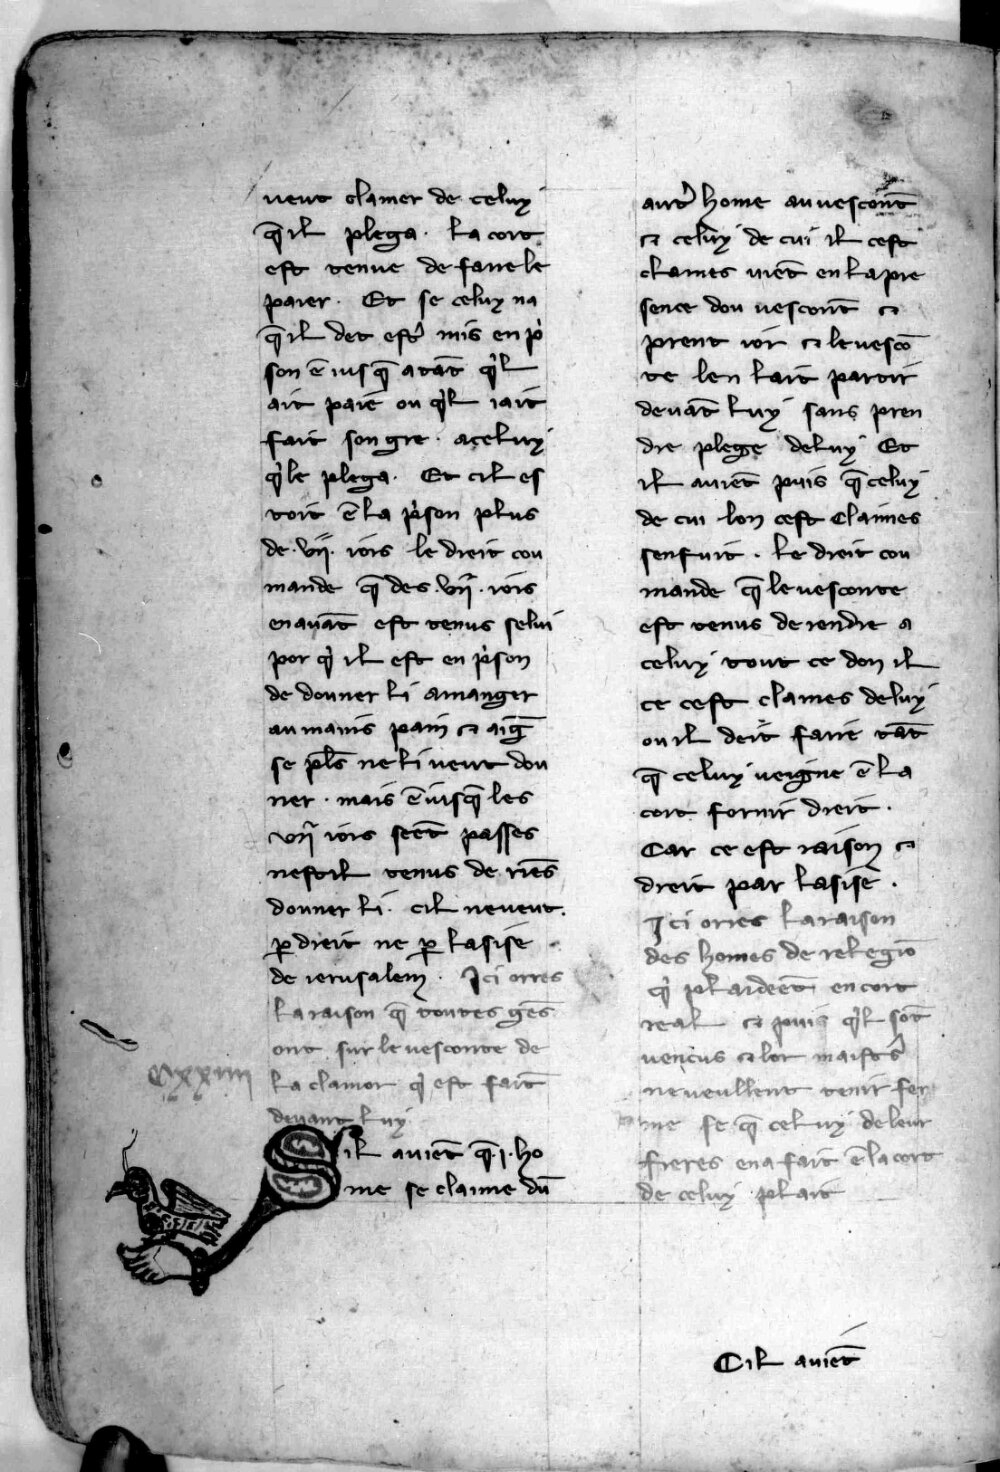 ueut clamer de celuy
q̄ il plega · La cort
est tenue de faire le
paier · Et se celuy na
q̄ il det estr̉ mis en p̉
son ē iusq̄ atāt q̉l
ait paie ou q̉l iait
fait son gre · aceluy
q̉le plega · Et cil es
toit ē la p̉son plus
de · vii · iors le dreit cou
mande q̄ des · vii · iors
en auāt est tenus selui
por q̉ il est en p̉son
de donner li amanger
au mains pain ⁊ aiḡ
se pl̄s ne li ueut don
ner · mais ē iusq̄ les
vii iors seēt passes
nest il tenus de riēs
donner li · cil ne ueut ·
ꝑ dreit ne ꝑ lasise
de ierusalem · Ici orres
la raison q̄ toutes gēs
ont sur le uesconte de
la clamor q̉ est fait
deuant luy
cxxiiii
Sil auiēt q̄ · i · ho
me se claime dū
autr̉ home au uescont
⁊ celuy de cui il cest
clames uiēt en la pre
sence dou uescont ⁊
prent ior ⁊ le uescō
te len lait partir
deuāt luy sans pren
dre plege deluy Et
il auiēt puis q̄ celuy
de cui lon cest claimes
senfuit · Le dreit cou
mande q̄ le uesconte
est tenus de rendre a
celuy tout ce don il
ce cest clames deluy
ou il deit faire tāt
q̄ celuy ueigne ē la
cort fornir dreit ·
Car ce est raison ⁊
dreit par lasise ·
Ici orres la raison
des homes de relegiō
q̉ plaideēt en cort
real ⁊ puis q̉l sōt
uencus ⁊ lor maistr̉
ne ueullent tenir fer
me se q̄ celuy de leur
freres en a fait ē la cort
de celuy plait
Cil auiēt